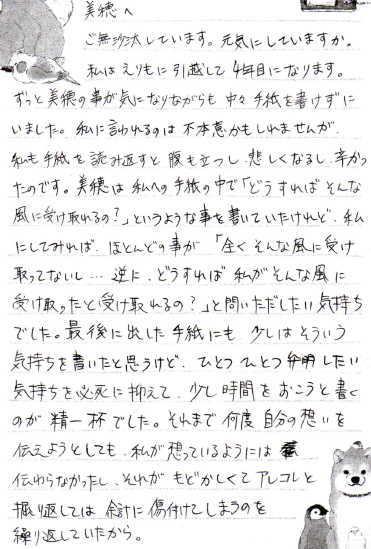 美穂へ
ご無沙汰しています。元気にしていますか。
私はえりもに引越して4年目になります。
ずっと美穂の事が気になりながらも中々手紙を書けずに
いました。私に言われるのは不本意かもしれませんが、
私も手紙を読み返すと腹も立つし悲しくなるし、辛かっ
たのです。美穂は私への手紙の中で「どうすればそんな
風に受け取れるの？」というような事を書いていたけれど、私
にしてみれば、ほとんどの事が「全くそんな風に受け
取ってないし…逆に、どうすれば私がそんな風に
受け取ったと受け取れるの？」と問いただしたい気持ち
でした。最後に出した手紙にも少しはそういう
気持ちを書いたと思うけど、ひとつひとつ弁明したい
気持ちを必死に抑えて、少し時間をおこうと書く
のが精一杯でした。それまで何度自分の想いを
伝えようとしても、私が想っているようには
伝わらなかったし、それがもどかしくてアレコレと
掘り返しては余計に傷付けてしまうのを
繰り返していたから。